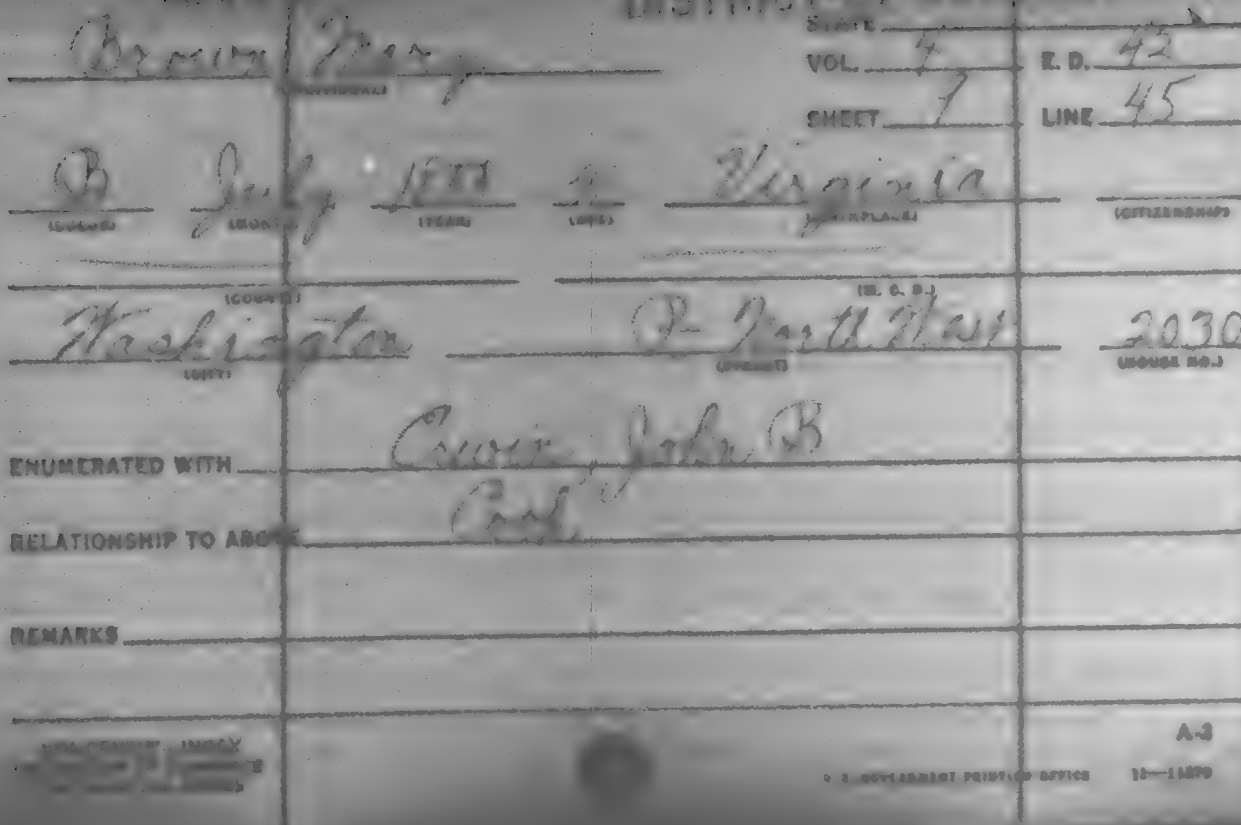 STATE
Brown Mary
(INDIVIDUAL)
VOL. 4 E. D. 42
SHEET 7 LINE 45
B July Virginia
(COLOR) (MONTH) (YEAR) (AGE) (BIRTHPLACE) (CITIZENSHIP)
(COUNTY) (M. C. D.)
Washington North West 2030
(CITY) (STREET) (HOUSE NO.)
ENUMERATED WITH John B
RELATIONSHIP TO ABOVE Cook
REMARKS
CENSUS INDEX
A-2
U. S. GOVERNMENT PRINTING OFFICE